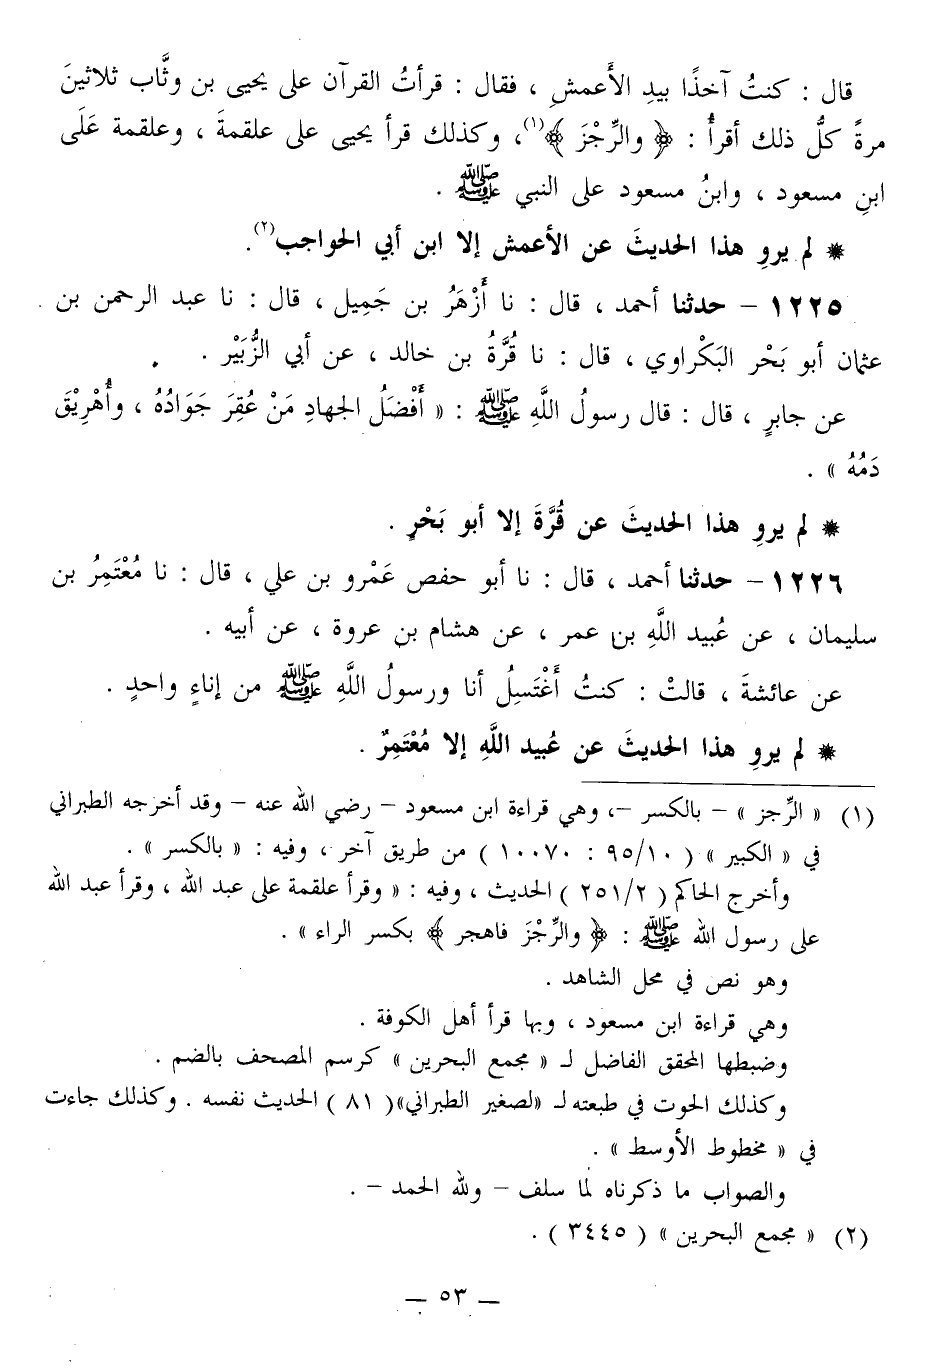 قال : كنتُ آخذًا بيدِ الأَعمشِ ، فقال : قرأتُ القرآن على يحيى بن وثَّاب ثلاثينَ
مرةً كلُّ ذلك أقرأُ : ﴿ والرِّجْزَ ﴾(١)، وكذلك قرأ يحيى على علقمةَ ، وعلقمة عَلَى
ابنِ مسعود ، وابنُ مسعود على النبي ﷺ .
* لم يروِ هذا الحديثَ عن الأعمش إلا ابن أبي الحواجب(٢).
١٢٢٥ - حدثنا أحمد ، قال : نا أَزْهَرُ بن جَمِيل ، قال : نا عبد الرحمن بن
عثمان أبو بَحْر البَكْراوي ، قال : نا قُرَّةُ بن خالد ، عن أبي الزُّبَيْر .
عن جابرٍ ، قال : قال رسولُ اللَّهِ ﷺ : « أَفْضَلُ الجهادِ مَنْ عُقِرَ جَوَادُهُ ، وأُهْرِيْقَ
دَمُهُ » .
* لم يروِ هذا الحديثَ عن قُرَّةَ إلا أبو بَحْرٍ .
١٢٢٦ - حدثنا أحمد ، قال : نا أبو حفص عَمْرو بن علي ، قال : نا مُعْتَمِرُ بن
سليمان ، عن عُبيد اللَّهِ بن عمر ، عن هشام بن عروة ، عن أبيه .
عن عائشةَ ، قالتْ : كنتُ أَغْتَسِلُ أنا ورسولُ اللَّهِ ﷺ من إناءٍ واحدٍ .
* لم يروِ هذا الحديثَ عن عُبيد اللَّهِ إلا مُعْتَمِرٌ .
(١) « الرِّجز » - بالكسر -، وهي قراءة ابن مسعود - رضي الله عنه - وقد أخرجه الطبراني
في « الكبير » ( ٩٥/١٠ : ١٠٠٧٠ ) من طريق آخر ، وفيه : « بالكسر » .
وأخرج الحاكم ( ٢٥١/٢ ) الحديث ، وفيه : « وقرأ علقمة على عبد الله ، وقرأ عبد الله
على رسول الله ﷺ : ﴿ والرِّجْزَ فاهجر ﴾ بكسر الراء » .
وهو نص في محل الشاهد .
وهي قراءة ابن مسعود ، وبها قرأ أهل الكوفة .
وضبطها المحقق الفاضل لـ « مجمع البحرين » كرسم المصحف بالضم .
وكذلك الحوت في طبعته لـ «لصغير الطبراني»( ٨١ ) الحديث نفسه . وكذلك جاءت
في « مخطوط الأوسط » .
والصواب ما ذكرناه لما سلف - ولله الحمد - .
(٢) « مجمع البحرين » ( ٣٤٤٥ ) .
— ٥٣ —